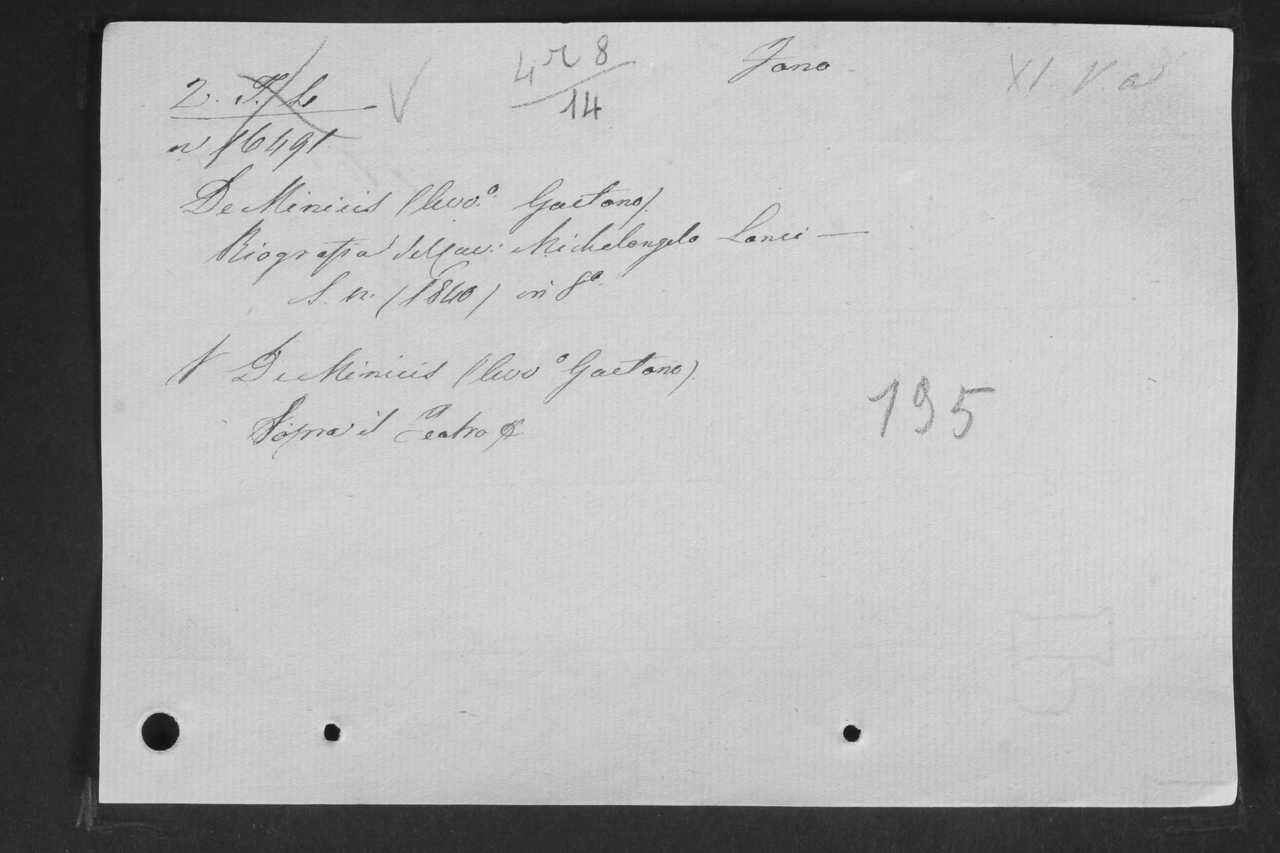 4 r 8 / 14
Fano
XI. V. a
2. T. L
V
n 16491
De Minicis (Avv.o Gaetano).
Biografia del Cav: Michelangelo Lanci —
S. n. (1840) in 8o.
V De Minicis (Avvo Gaetano).
Sopra il Teatro &
195